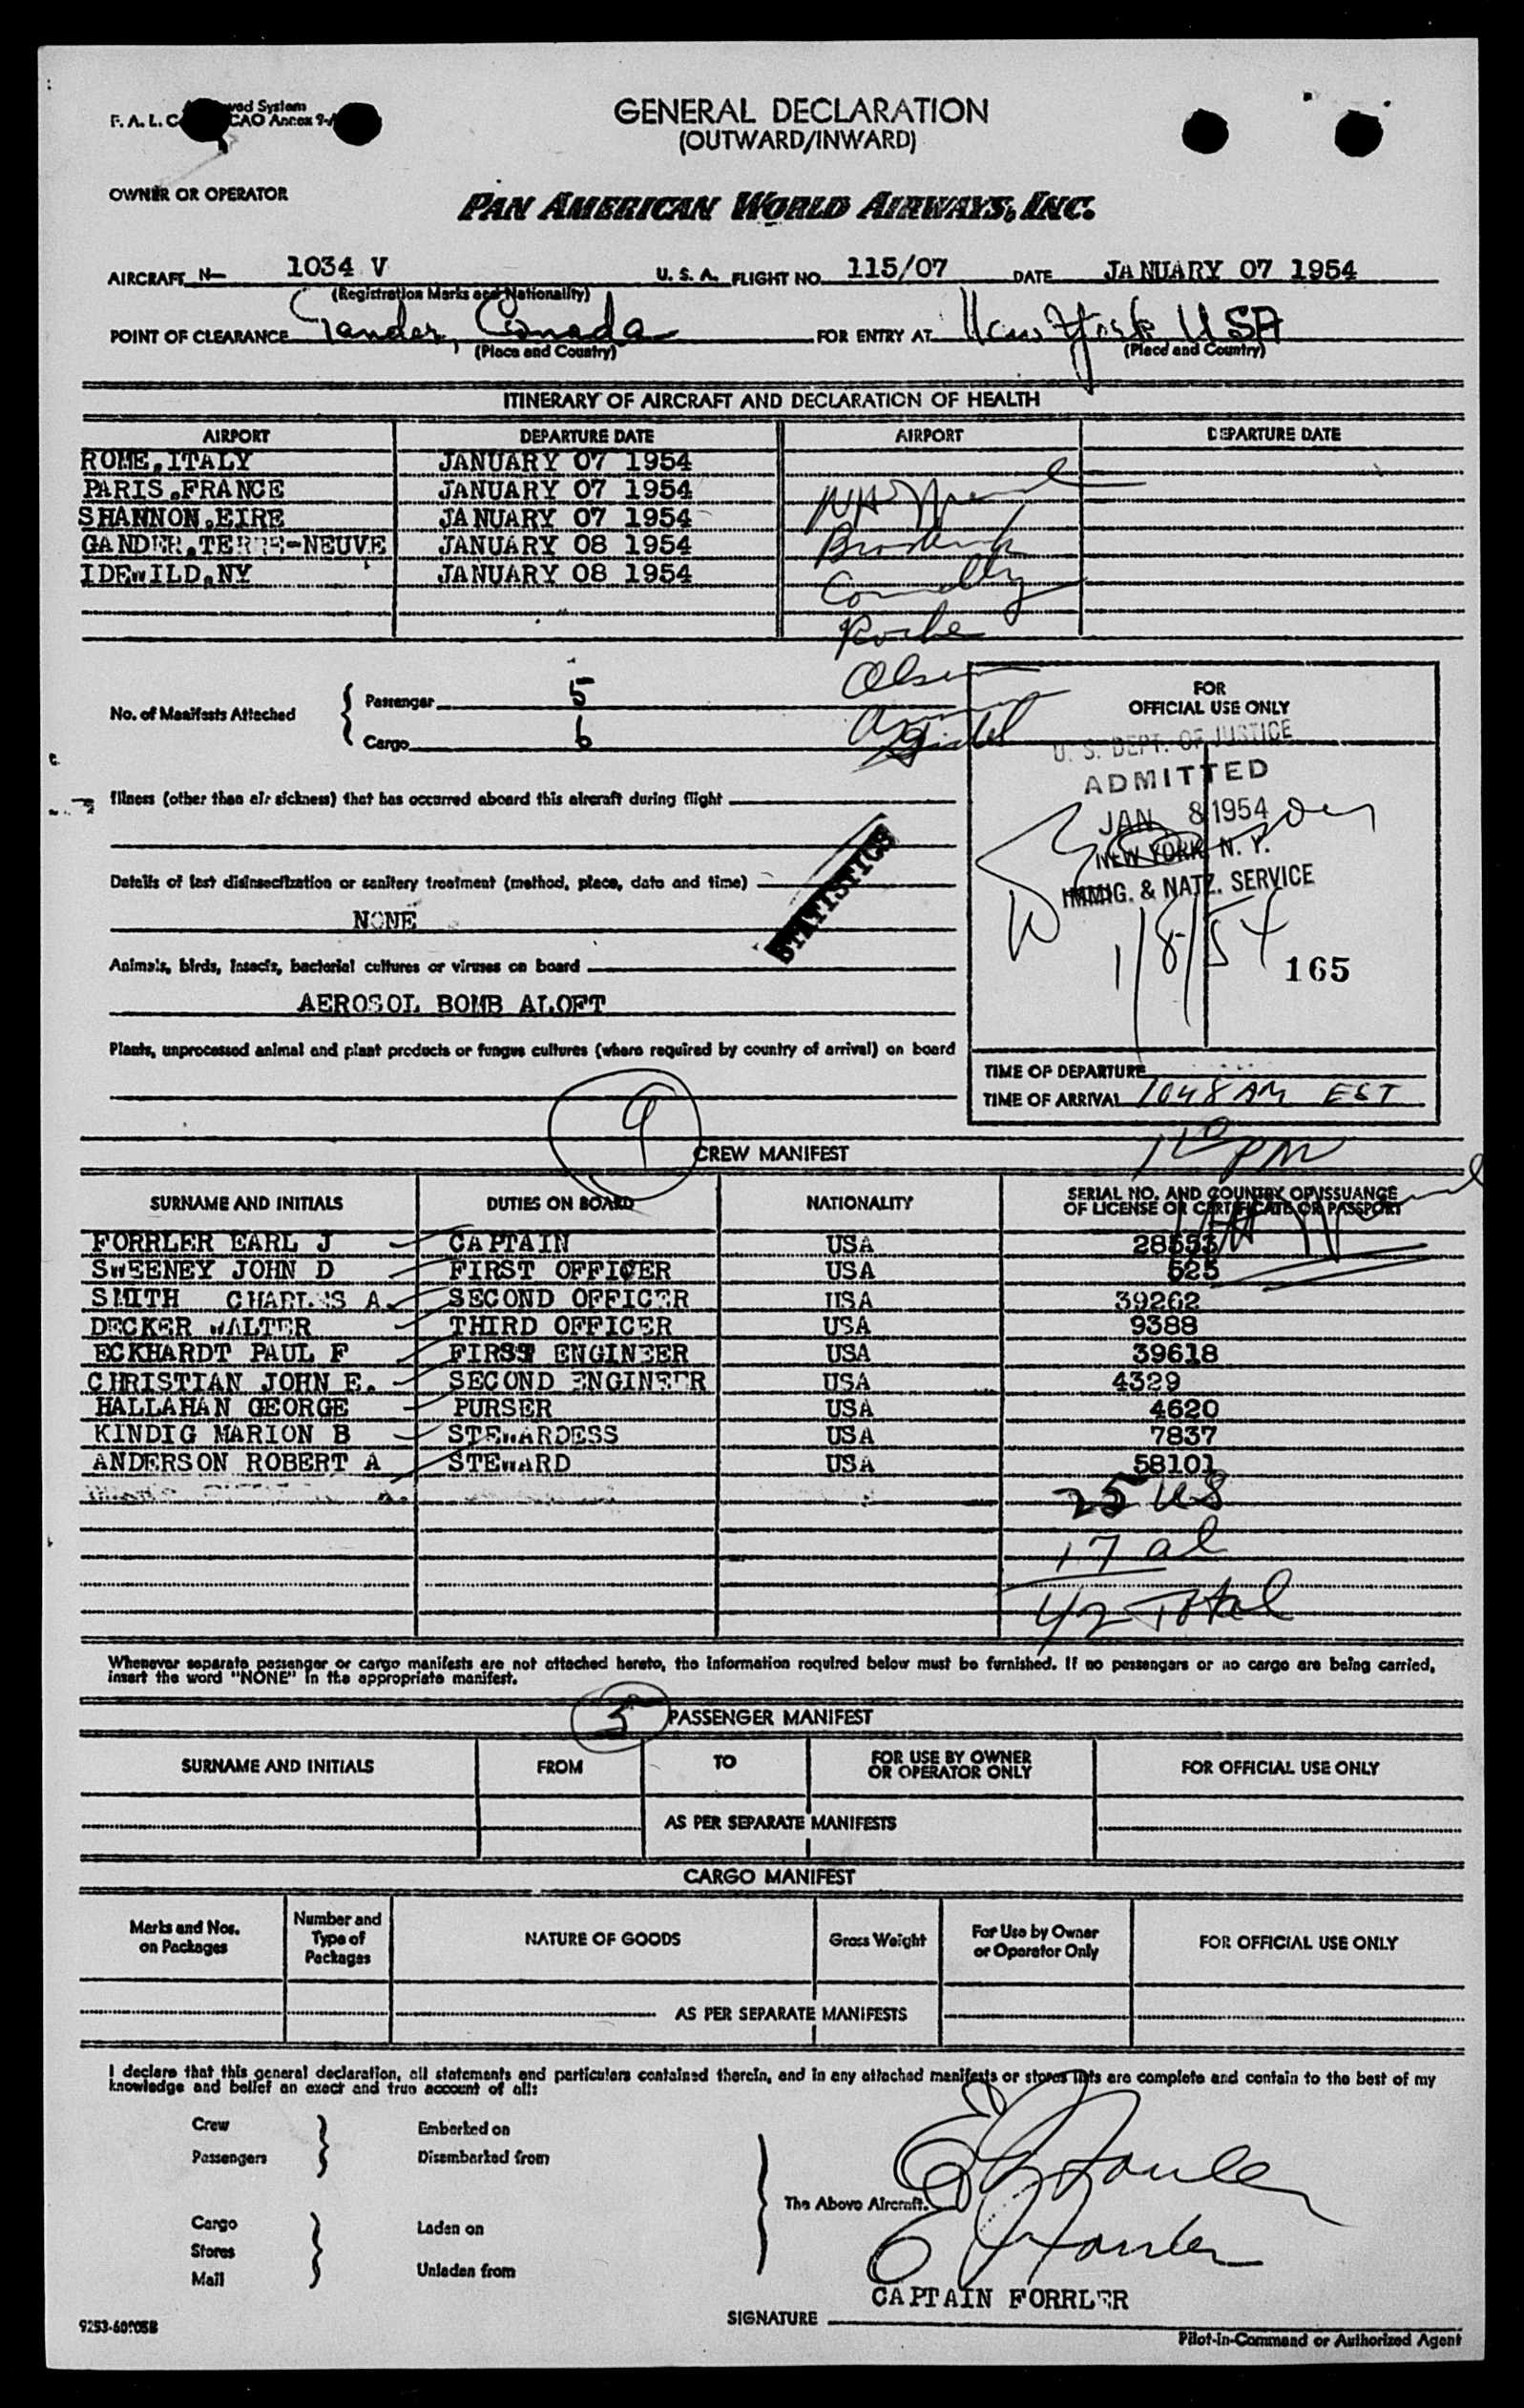 GENERAL DECLARATION
(OUTWARD/INWARD)
F. A. L. C
ved System
CAO Annex 9-A
OWNER OR OPERATOR
PAN AMERICAN WORLD AIRWAYS, INC.
AIRCRAFT N— 1034 V U. S. A. FLIGHT NO. 115/07 DATE JANUARY 07 1954
(Registration Marks and Nationality)
POINT OF CLEARANCE Gander, Canada FOR ENTRY AT New York, USA
(Place and Country) (Place and Country)
ITINERARY OF AIRCRAFT AND DECLARATION OF HEALTH
AIRPORT DEPARTURE DATE AIRPORT DEPARTURE DATE
ROME,ITALY JANUARY 07 1954
PARIS,FRANCE JANUARY 07 1954
SHANNON,EIRE JANUARY 07 1954
GANDER,TERRE-NEUVE JANUARY 08 1954
IDEWILD,NY JANUARY 08 1954
Connolly
Roche
Olsen
No. of Manifests Attached
Passenger 5
Cargo 6
Illness (other than air sickness) that has occurred aboard this aircraft during flight
Details of last disinsectization or sanitary treatment (method, place, date and time)
NONE
Animals, birds, insects, bacterial cultures or viruses on board
AEROSOL BOMB ALOFT
Plants, unprocessed animal and plant products or fungus cultures (where required by country of arrival) on board
STATISTICS
FOR
OFFICIAL USE ONLY
U. S. DEPT. OF JUSTICE
ADMITTED
JAN 8 1954
NEW YORK, N. Y.
IMMIG. & NATZ. SERVICE
1/8/54
165
TIME OF DEPARTURE
TIME OF ARRIVAL 1048 AM EST
PM
9
CREW MANIFEST
SURNAME AND INITIALS DUTIES ON BOARD NATIONALITY SERIAL NO. AND COUNTRY OF ISSUANCE
OF LICENSE OR CERTIFICATE OR PASSPORT
FORRLER EARL J CAPTAIN USA 28553
SWEENEY JOHN D FIRST OFFICER USA 525
SMITH CHARLES A. SECOND OFFICER USA 39262
DECKER WALTER THIRD OFFICER USA 9388
ECKHARDT PAUL F FIRST ENGINEER USA 39618
CHRISTIAN JOHN E. SECOND ENGINEER USA 4329
HALLAHAN GEORGE PURSER USA 4620
KINDIG MARION B STEWARDESS USA 7837
ANDERSON ROBERT A STEWARD USA 58101
25 US
17 al
42 Total
Whenever separate passenger or cargo manifests are not attached hereto, the information required below must be furnished. If no passengers or no cargo are being carried,
insert the word "NONE" in the appropriate manifest.
5
PASSENGER MANIFEST
SURNAME AND INITIALS FROM TO FOR USE BY OWNER
OR OPERATOR ONLY FOR OFFICIAL USE ONLY
AS PER SEPARATE MANIFESTS
CARGO MANIFEST
Marks and Nos.
on Packages
Number and
Type of
Packages
NATURE OF GOODS
Gross Weight
For Use by Owner
or Operator Only
FOR OFFICIAL USE ONLY
AS PER SEPARATE MANIFESTS
I declare that this general declaration, all statements and particulars contained therein, and in any attached manifests or stores lists are complete and contain to the best of my
knowledge and belief an exact and true account of all:
Crew Embarked on
Passengers Disembarked from
The Above Aircraft.
Cargo Laden on
Stores
Mail Unladen from
CAPTAIN FORRLER
SIGNATURE
Pilot-in-Command or Authorized Agent